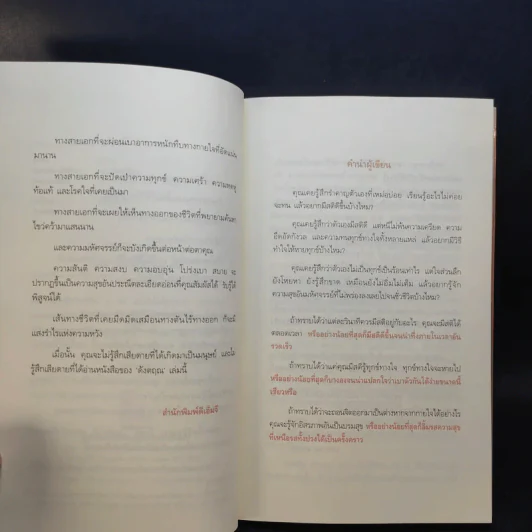 ทางสายเอกที่จะผ่อนเบาอาการหนักทึบทางกายใจที่อัดแน่น
มานาน
ทางสายเอกที่จะปัดเป่าความทุกข์ ความเศร้า ความหดหู่
ท้อแท้ และโรคใจที่เคยเป็นมา
ทางสายเอกที่จะเผยให้เห็นทางออกของชีวิตที่พยายามค้นหา
ไขว่คว้ามาแสนนาน
และความมหัศจรรย์ก็จะบังเกิดขึ้นต่อหน้าต่อตาคุณ
ความสันติ ความสงบ ความอบอุ่น โปร่งเบา สบาย จะ
ปรากฏขึ้นเป็นความสุขอันประณีตละเอียดอ่อนที่คุณสัมผัสได้ รับรู้ได้
พิสูจน์ได้
เส้นทางชีวิตที่เคยมืดมิดเสมือนทางตันไร้ทางออก ก็จะมี
แสงรำไรแห่งความหวัง
เมื่อนั้น คุณจะไม่รู้สึกเสียดายที่ได้เกิดมาเป็นมนุษย์ และไม่
รู้สึกเสียดายที่ได้อ่านหนังสือของ 'ดังตฤณ' เล่มนี้
สำนักพิมพ์ดีเอ็มจี
คำนำผู้เขียน
คุณเคยรู้สึกรำคาญตัวเองที่เหม่อบ่อย เรียนรู้อะไรไม่ค่อย
จะทน แล้วอยากมีสติดีขึ้นบ้างไหม?
คุณเคยรู้สึกว่าตัวเองมีสติดี แต่หนีไม่พ้นความเครียด ความ
อึดอัดกังวล และความทนทุกข์ทางใจทั้งหลายแหล่ แล้วอยากมีวิธี
ทำใจให้หายทุกข์บ้างไหม?
คุณเคยรู้สึกว่าตัวเองไม่เป็นทุกข์เป็นร้อนเท่าไร แต่ใจส่วนลึก
ยังโหยหา ยังรู้สึกขาด เหมือนยังไม่อิ่มไม่เต็ม แล้วอยากรู้จัก
ความสุขอันมหัศจรรย์ที่ไม่พร่องลงเลยไปจนชั่วชีวิตบ้างไหม?
ถ้าทราบได้ว่าแต่ละวินาทีควรมีสติอยู่กับอะไร คุณจะมีสติได้
ตลอดเวลา หรืออย่างน้อยที่สุดก็มีสติดีขึ้นจนน่าทึ่งภายในเวลาอัน
รวดเร็ว
ถ้าทราบได้ว่าแต่คุณมีสติรู้ทุกข์ทางใจ ทุกข์ทางใจจะหายไป
หรืออย่างน้อยที่สุดก็เบาลงจนน่าแปลกใจว่าเบาตัวกันได้ง่ายขนาดนี้
เชียวหรือ
ถ้าทราบได้ว่าจะถอนจิตออกมาเป็นต่างหากจากกายใจได้อย่างไร
คุณจะรู้จักอิสรภาพอันเป็นบรมสุข หรืออย่างน้อยที่สุดก็ลิ้มรสความสุข
ที่เหนือรสทั้งปวงได้เป็นครั้งคราว